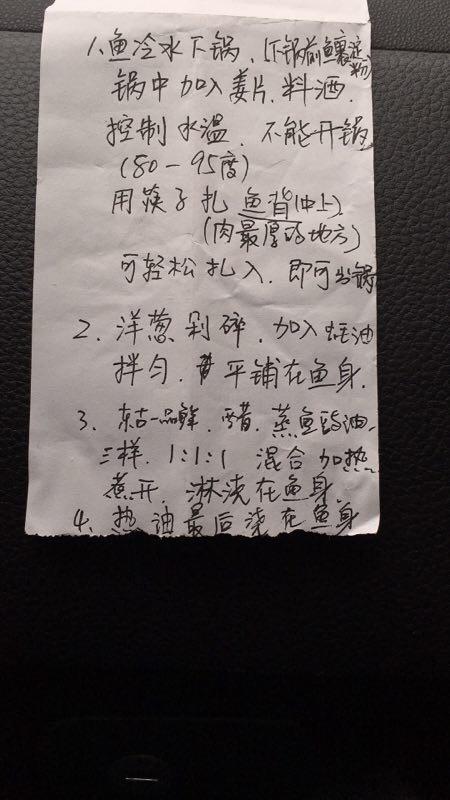 1、鱼冷水下锅、(下锅前鱼裹淀粉)
锅中加入姜片、料酒、
控制水温、不能开锅
(80-95度)
用筷子扎鱼背(中上)
(肉最厚的地方)
可轻松扎入、即可出锅
2、洋葱剁碎、加入蚝油
拌匀、平铺在鱼身、
3、东古一品鲜、醋、蒸鱼豉油、
三样、1:1:1 混合加热
煮开、淋浇在鱼身
4、热油最后浇在鱼身